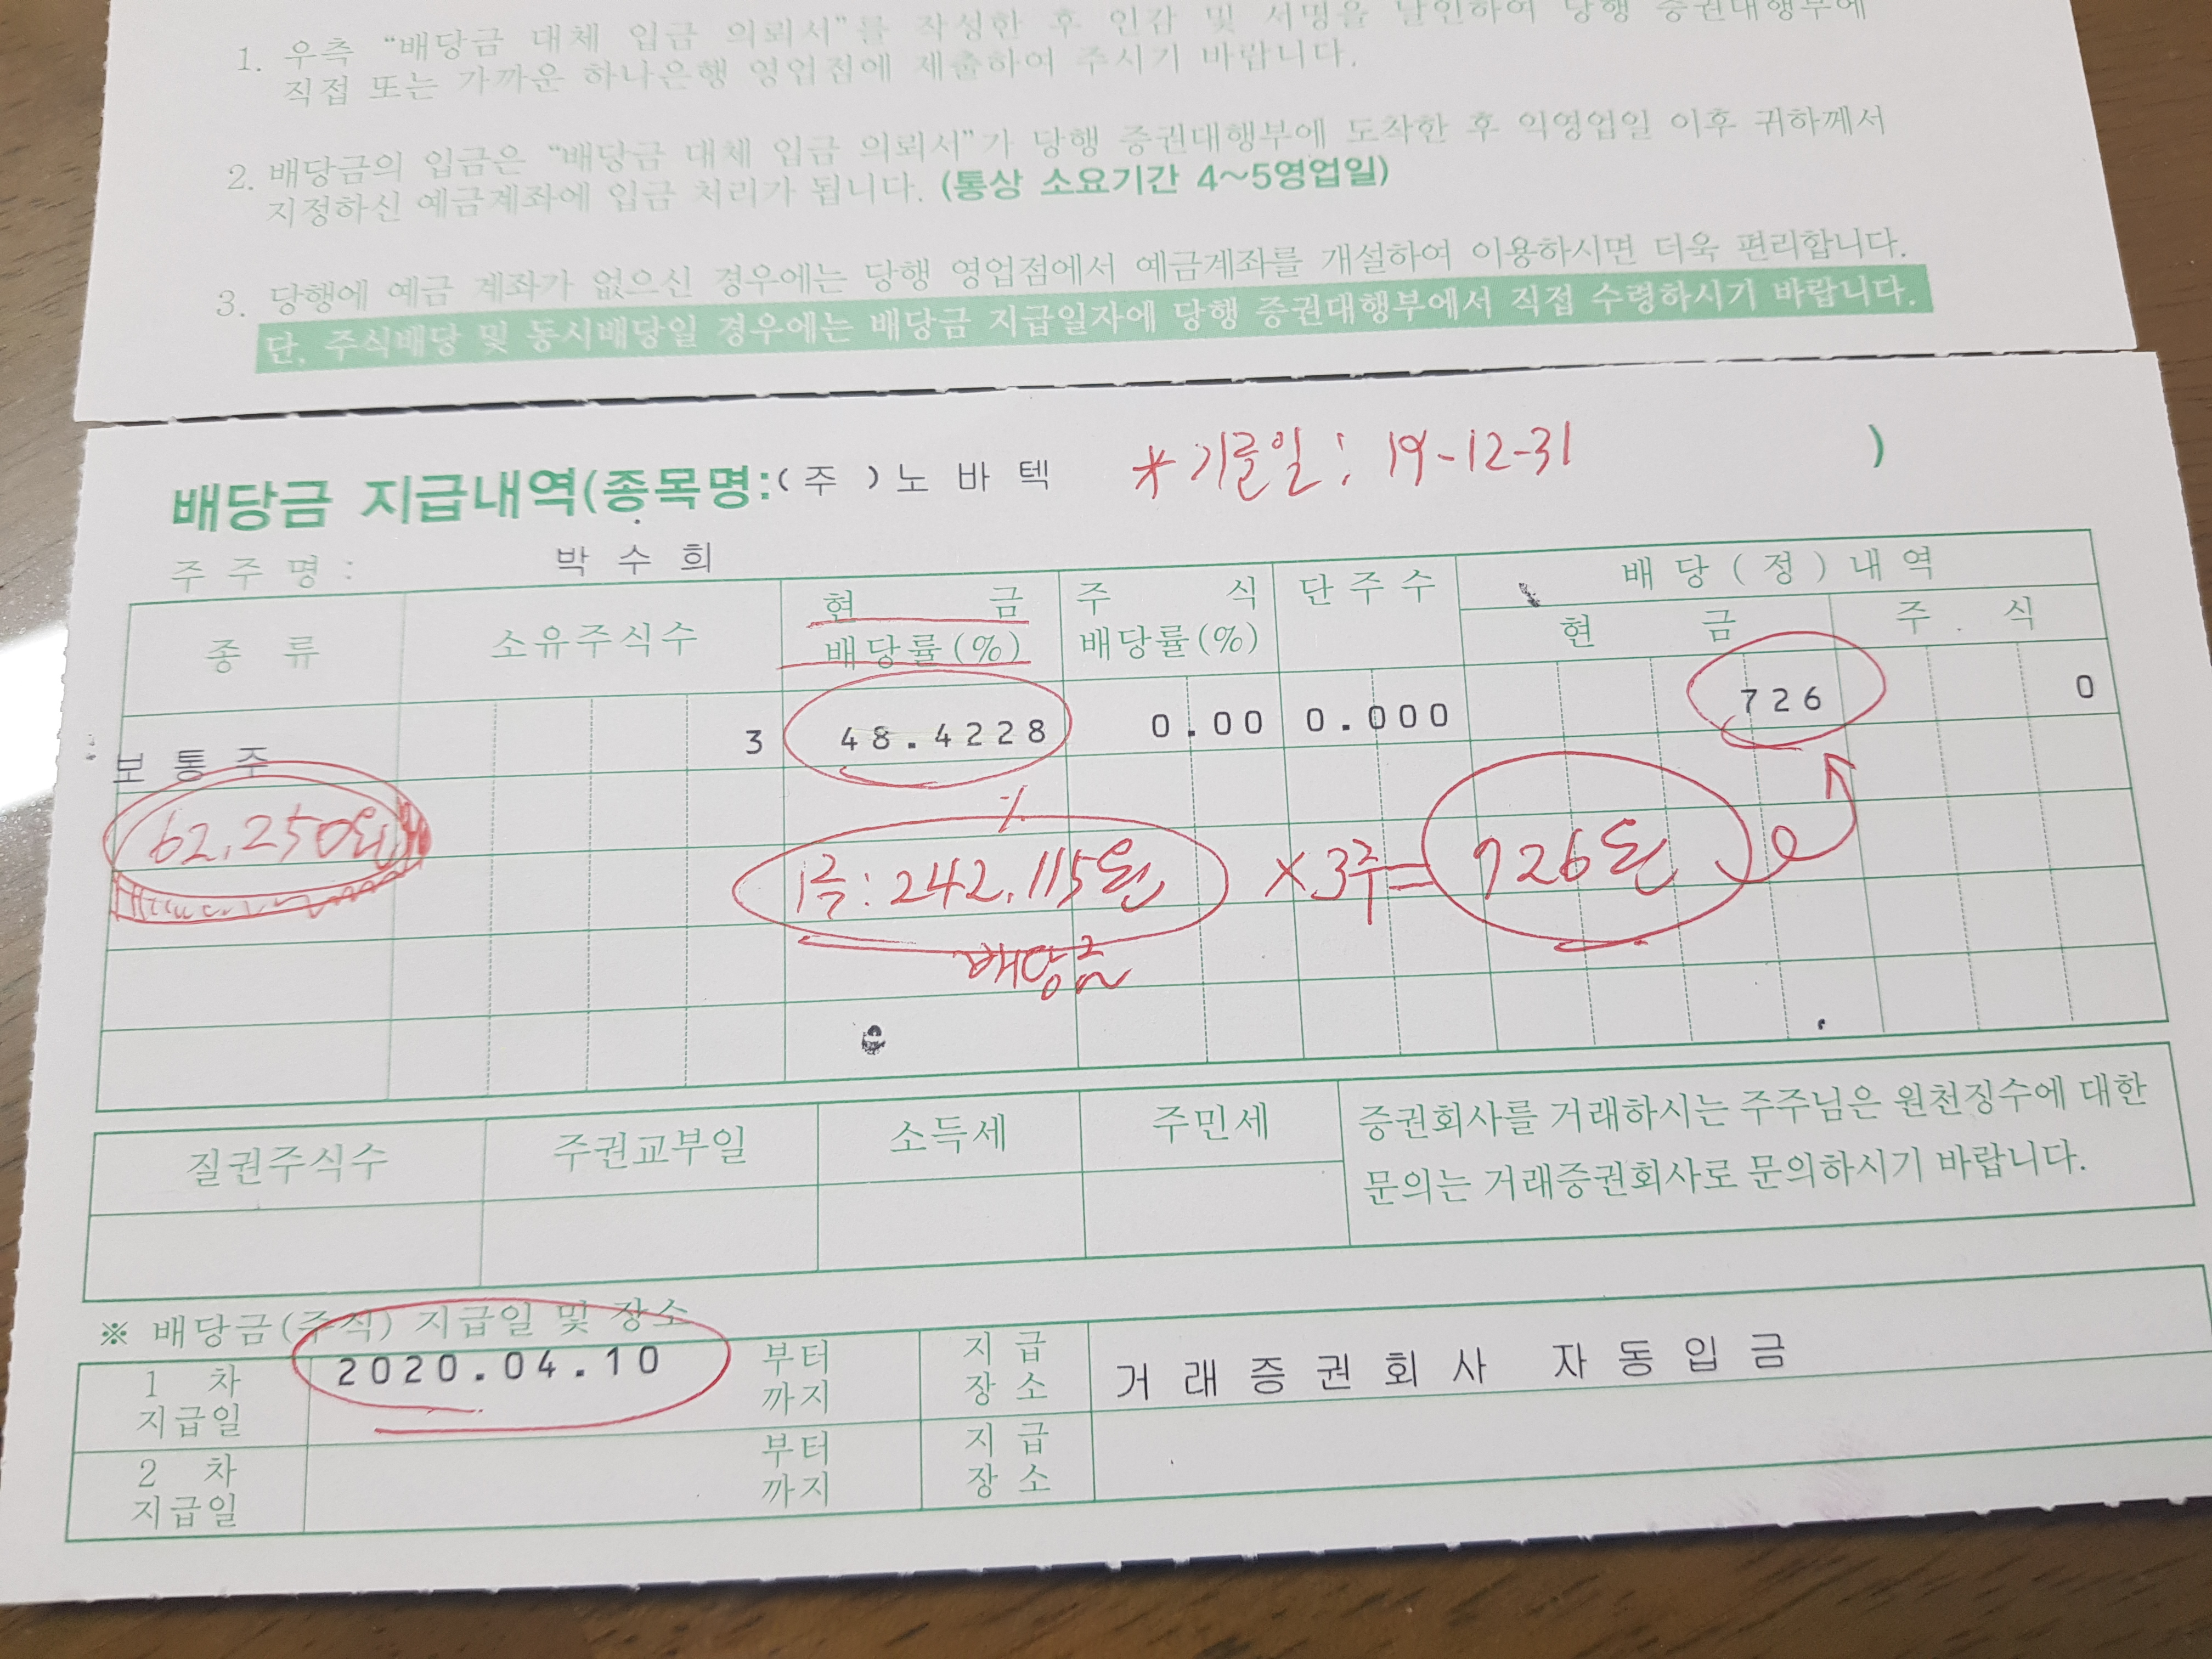 1. 우측 “배당금 대체 입금 의뢰서”를 작성한 후 인감 및 서명을 날인하여 당행 증권대행부에
직접 또는 가까운 하나은행 영업점에 제출하여 주시기 바랍니다.
2. 배당금의 입금은 “배당금 대체 입금 의뢰서”가 당행 증권대행부에 도착한 후 익영업일 이후 귀하께서
지정하신 예금계좌에 입금 처리가 됩니다. (통상 소요기간 4~5영업일)
3. 당행에 예금 계좌가 없으신 경우에는 당행 영업점에서 예금계좌를 개설하여 이용하시면 더욱 편리합니다.
단, 주식배당 및 동시배당일 경우에는 배당금 지급일자에 당행 증권대행부에서 직접 수령하시기 바랍니다.
배당금 지급내역(종목명:(주)노바텍 * 기준일: 19-12-31 )
주주명: 박수희
종류 소유주식수 현금 배당률(%) 주식 배당률(%) 단주수 배당(정)내역
현금 주식
보통주 3 48.4228 0.00 0.000 726 0
%
62,250원
1주: 242.115원 ×3주= 726원
배당금
질권주식수 주권교부일 소득세 주민세 증권회사를 거래하시는 주주님은 원천징수에 대한
문의는 거래증권회사로 문의하시기 바랍니다.
※ 배당금(주식) 지급일 및 장소
1차 지급일 2020.04.10 부터 까지 지급 장소 거래증권회사 자동입금
2차 지급일 부터 까지 지급 장소